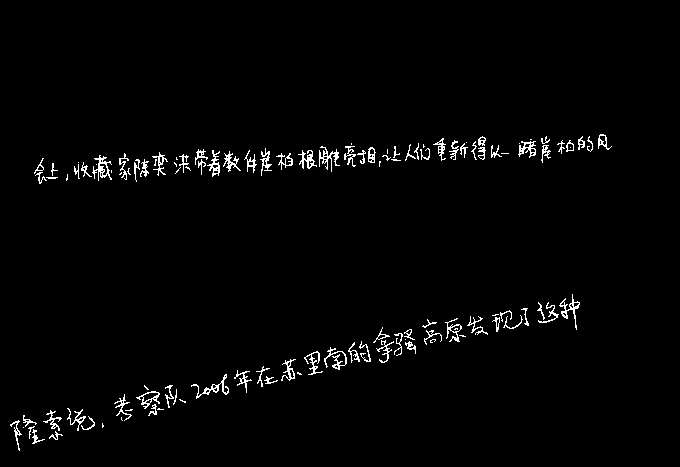 会上，收藏家陈奕洪带着数件崖柏根雕亮相，让人们重新得以一睹崖柏的风
隆索说，考察队2006年在苏里南的拿骚高原发现了这种